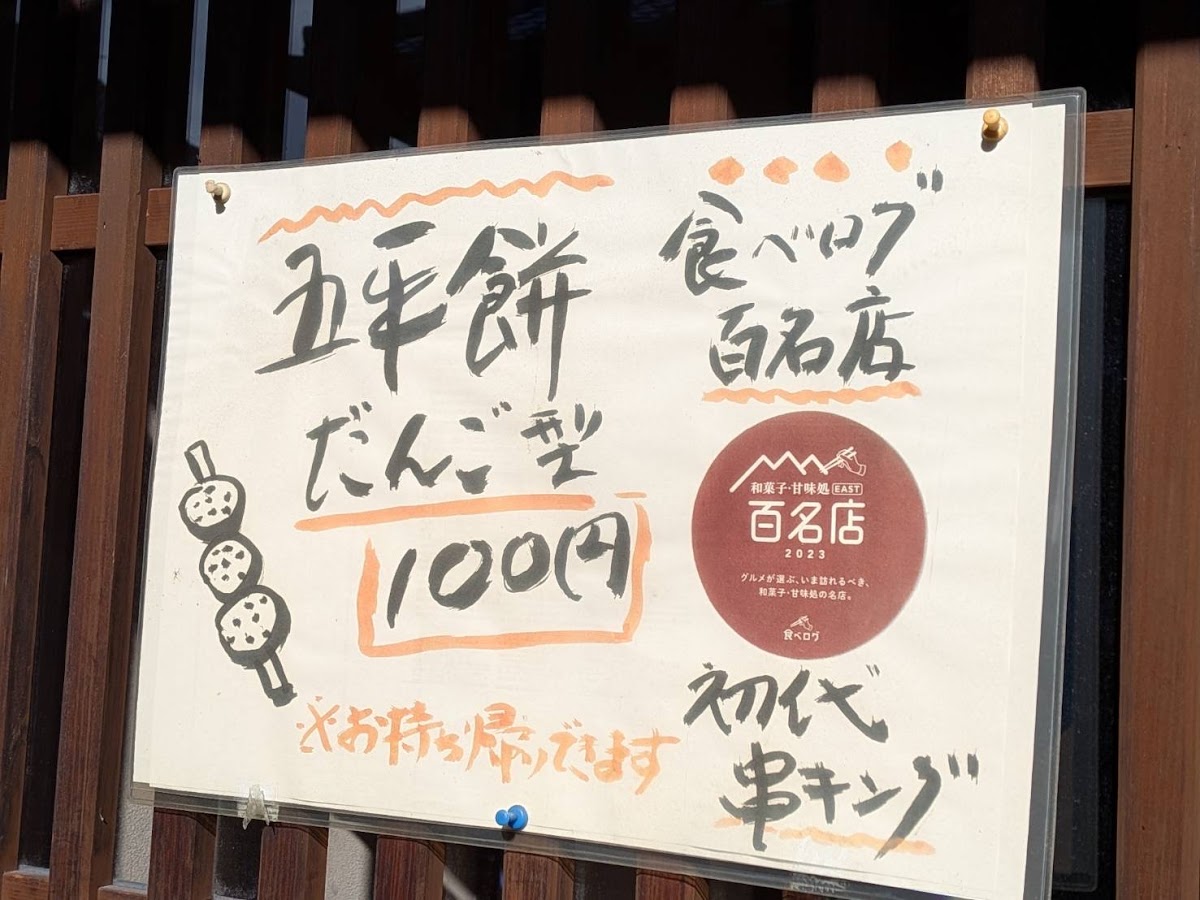 五平餅
だんご型
100円
※お持ち帰りできます
食べログ
百名店
和菓子・甘味処 EAST
百名店
2023
グルメが選ぶ、いま訪れるべき、
和菓子・甘味処の名店。
食べログ
初代
串キング